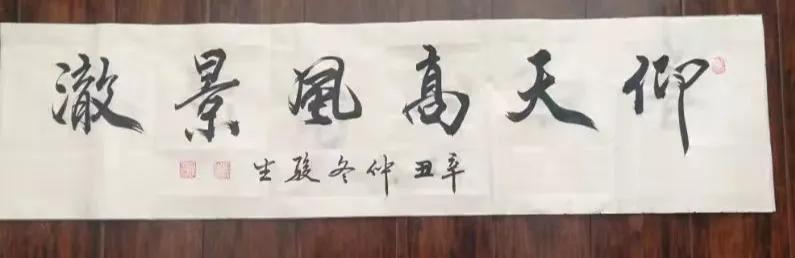 仰天高風景澈
辛丑仲冬駿生